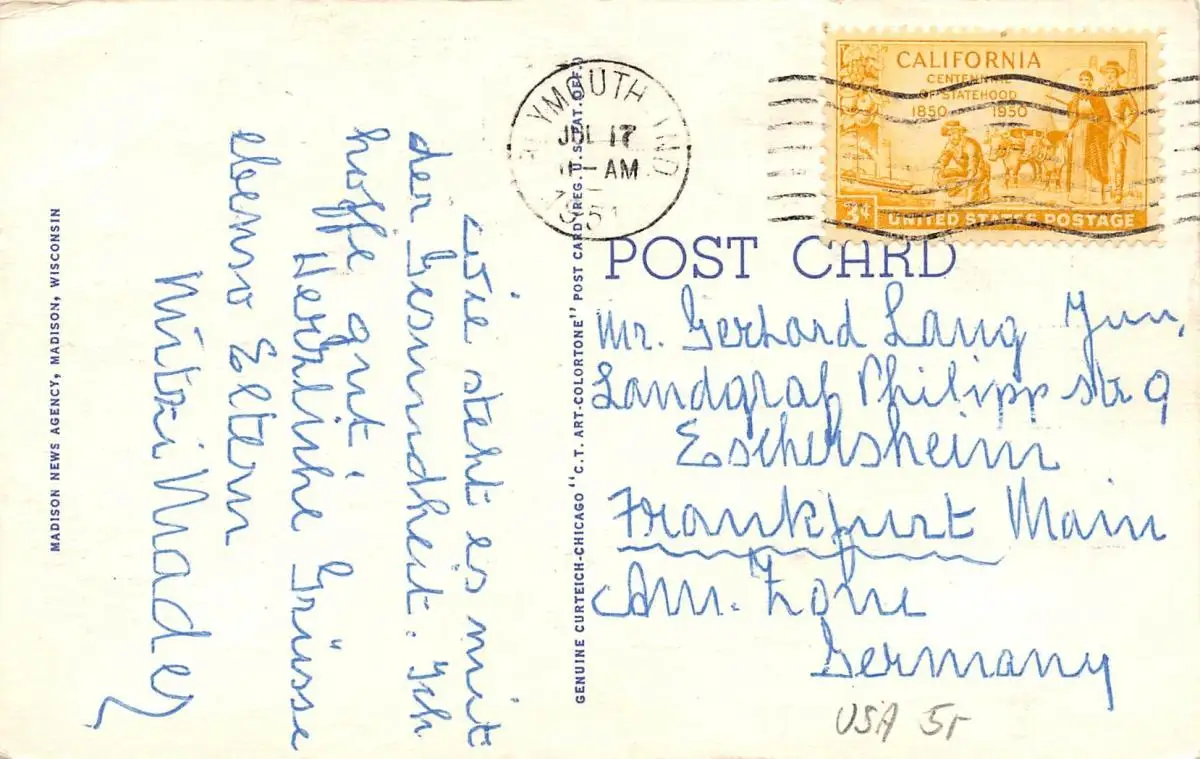 Wie steht es mit
der Gesundheit. Ich
hoffe gut.
Herzliche Grüsse
ebenso Eltern
Mitzi Nadey
PLYMOUTH IND
JUL 17
AM
CALIFORNIA
CENTENNIAL
OF STATEHOOD
1850 1950
3¢ UNITED STATES POSTAGE
POST CARD
Mr. Gerhard Lang Jun.
Landgraf Philipp str 9
Eschersheim
Frankfurt Main
Am. Zone
Germany
USA 51
GENUINE CURTEICH-CHICAGO "C.T. ART-COLORTONE" POST CARD (REG. U.S. PAT. OFF.)
MADISON NEWS AGENCY, MADISON, WISCONSIN